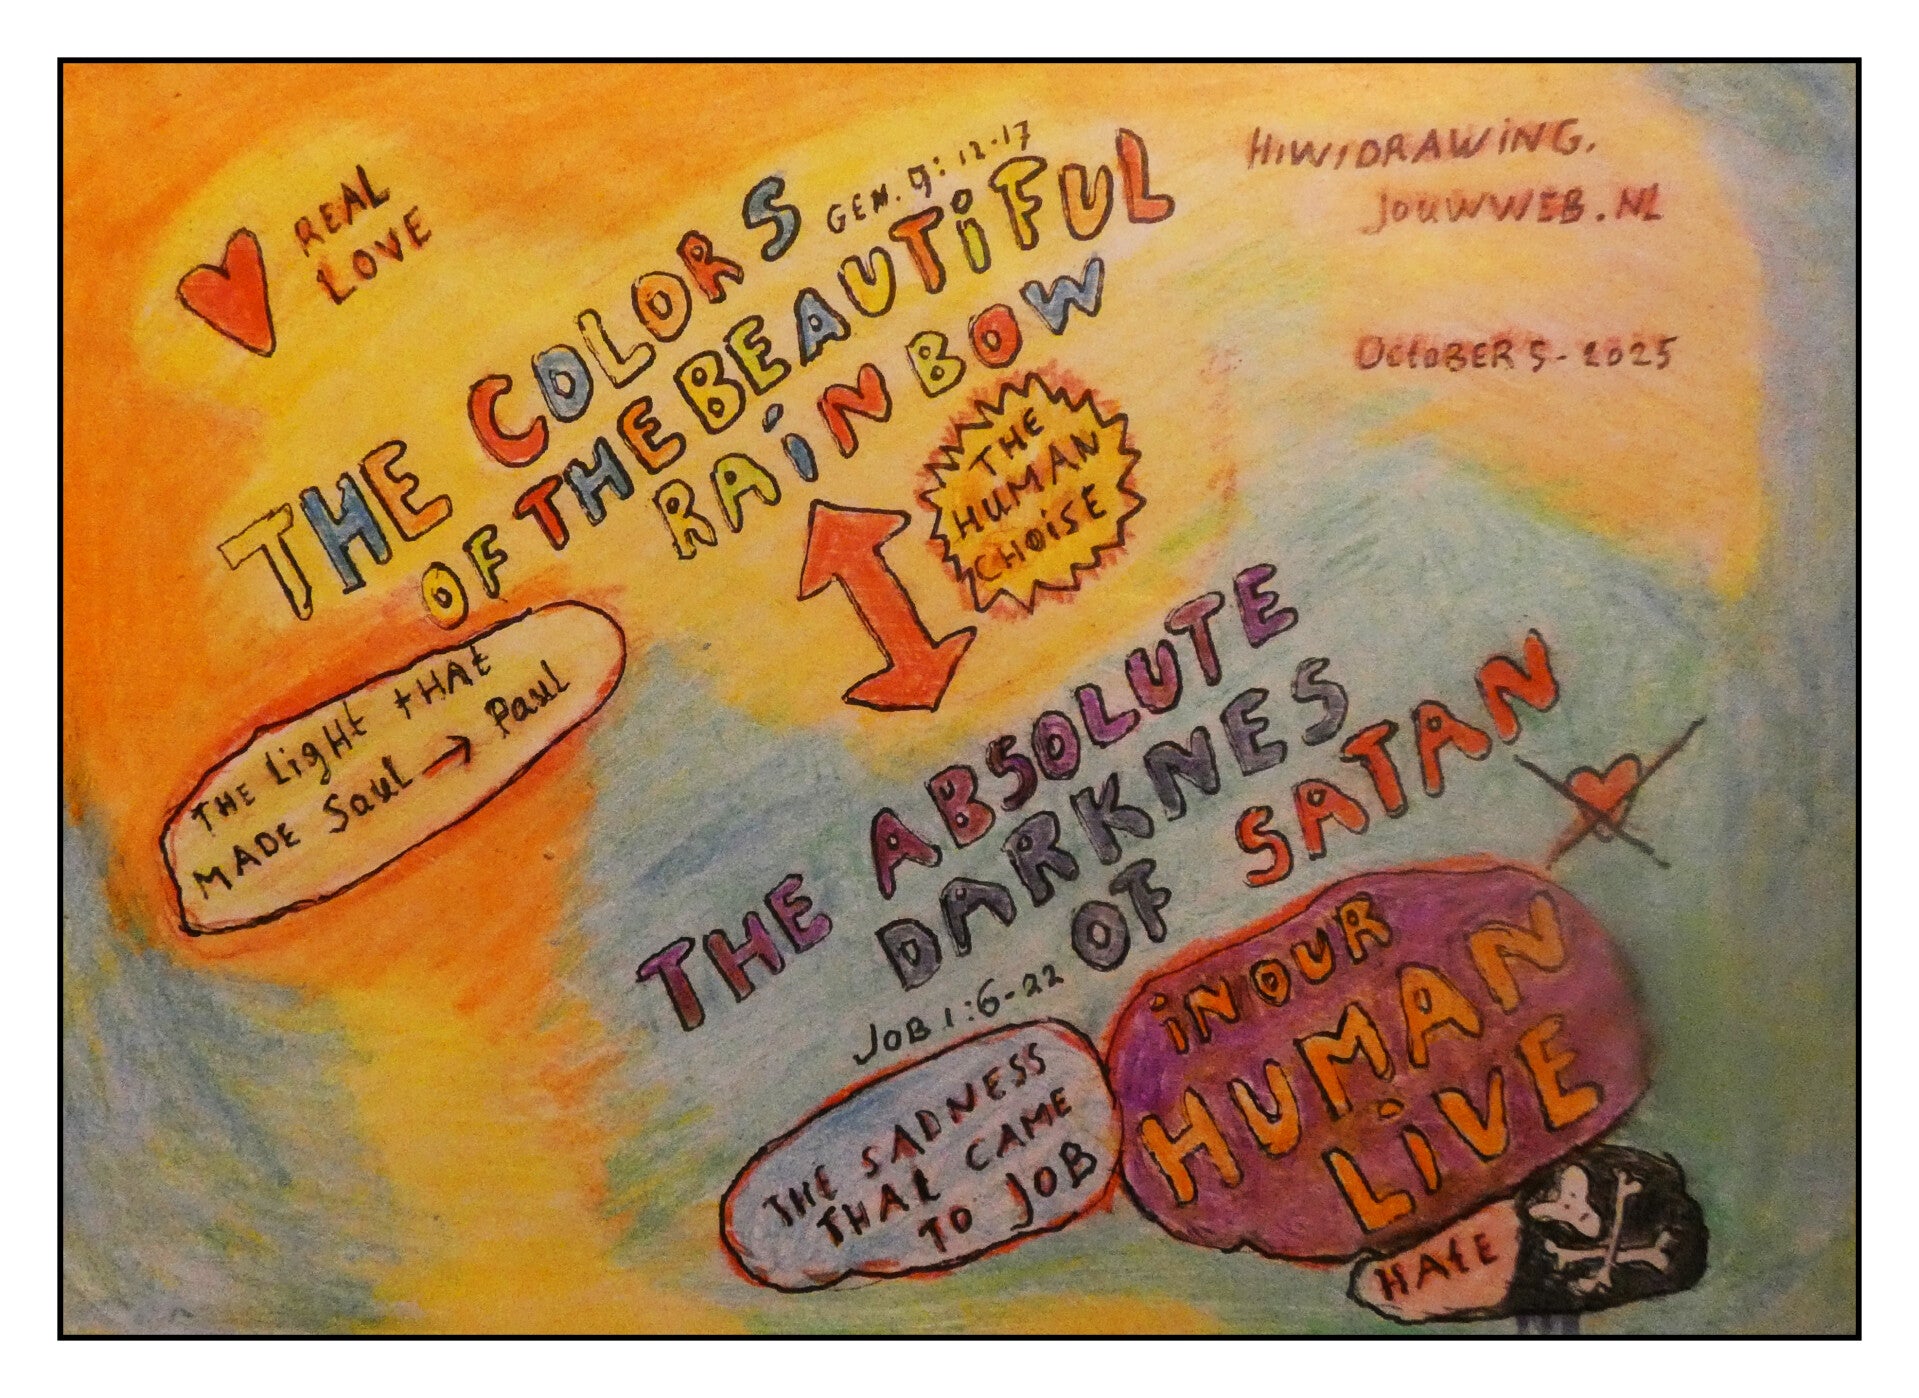 REAL
LOVE
THE COLORS
GEN. 9:12-17
OF THE BEAUTIFUL
RAiNBOW
HiWiDRAWiNG.
JOUWWEB.NL
OctoBER 5-2025
THE
HUMAN
CHOiSE
THE LigHt tHAt
MADE Saul → Paul
THE ABSOLUTE
DARKNES
OF SATAN
JOB 1:6-22
iN OUR
HUMAN
LiVE
THE SADNESS
THAt CAME
TO JOB
HAtE